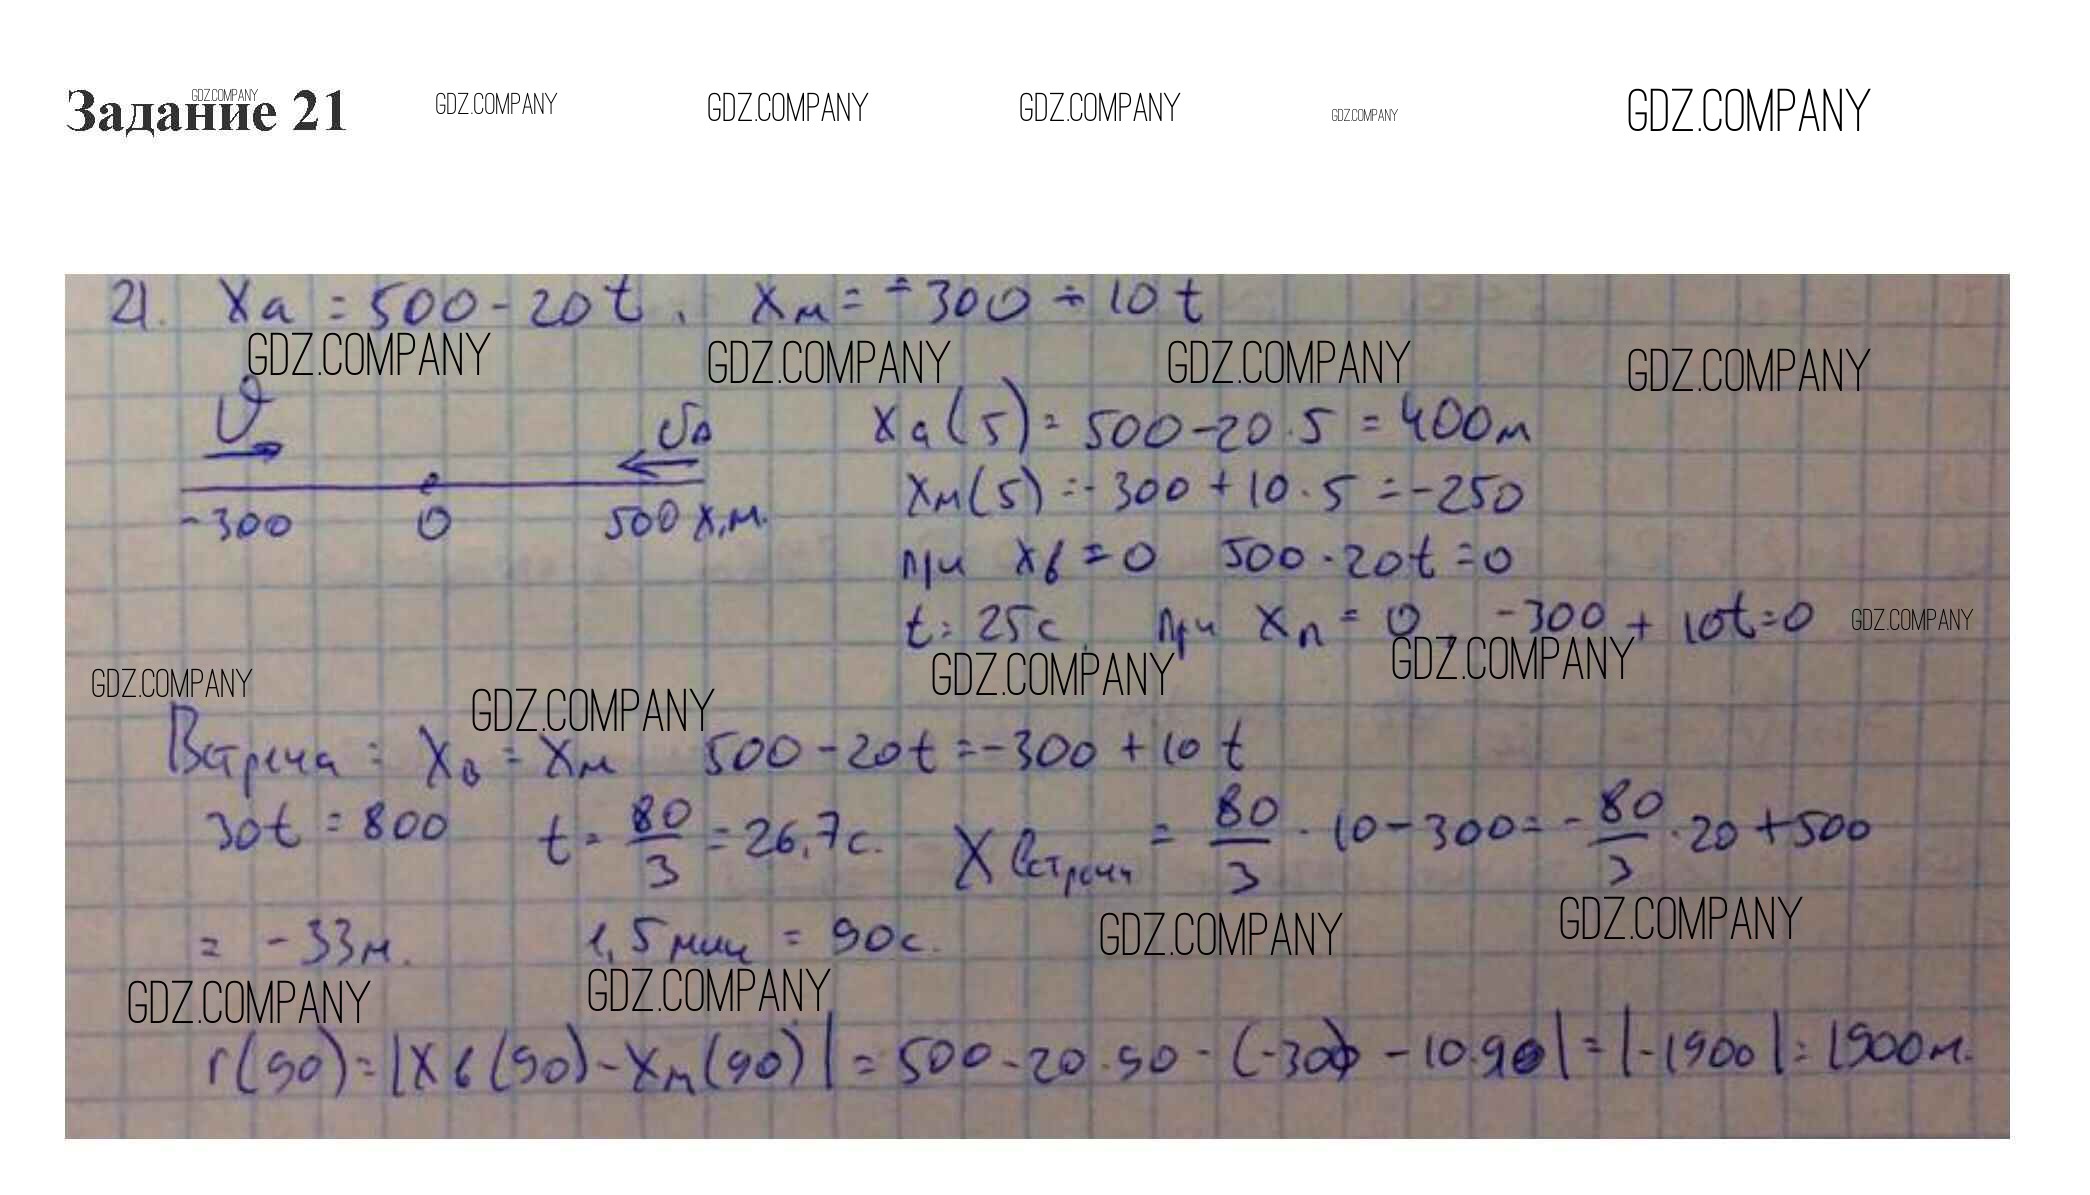 Задание 21
GDZ.COMPANY
GDZ.COMPANY
GDZ.COMPANY
GDZ.COMPANY
GDZ.COMPANY
GDZ.COMPANY
21. Xа = 500 - 20t, Xм = -300 + 10t
GDZ.COMPANY
GDZ.COMPANY
GDZ.COMPANY
GDZ.COMPANY
Xа(5) = 500 - 20·5 = 400м
-300 0 500 X,м.
Xм(5) = -300 + 10·5 = -250
при Xб = 0 500 - 20t = 0
t = 25с. при Xп = 0, -300 + 10t = 0
GDZ.COMPANY
GDZ.COMPANY
GDZ.COMPANY
GDZ.COMPANY
GDZ.COMPANY
Встреча: Xв = Xм 500 - 20t = -300 + 10t
30t = 800 t = 80/3 = 26,7с. Xвстречи = 80/3 · 10 - 300 = -80/3 · 20 + 500
= -33м. 1,5 мин = 90с.
GDZ.COMPANY
GDZ.COMPANY
GDZ.COMPANY
GDZ.COMPANY
r(90) = |Xб(90) - Xм(90)| = 500 - 20·90 - (-300 - 10·90| = |-1900| = 1900м.